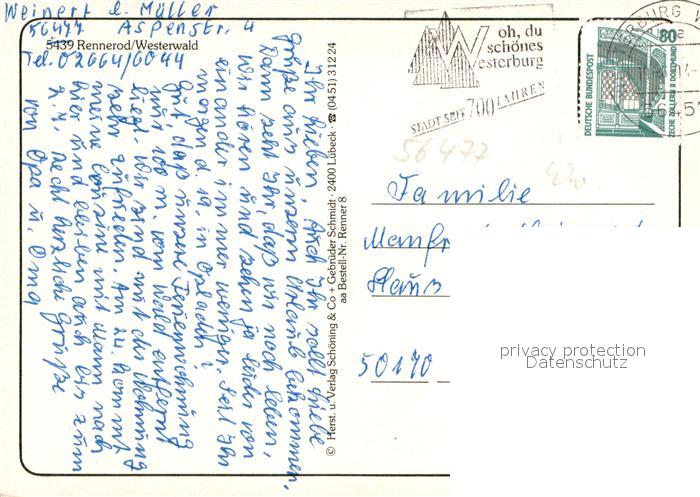 Weinert d. Müller
56477 Aspenstr. 4
5439 Rennerod/Westerwald
Tel. 02664/6044
Ihr Lieben, Auch Ihr sollt liebe
Grüße aus unserm Urlaub bekommen,
Dann seht Ihr, daß wir noch leben,
wir hören und sehen ja leider von
einander immer weniger. Seit Ihr
morgen d. 19. in Opladen?
Gut, daß unsere Ferienwohnung
nur 100 m. vom Wald entfernt
liegt. Wir sind mit der Wohnung
sehr zufrieden. Am 24. kommt
meine Cousine mit Mann nach
hier und bleiben auch bis zum
Recht herzliche Grüße
von Opa u. Oma
© Herst. u. Verlag Schöning & Co + Gebrüder Schmidt · 2400 Lübeck · ☎ (04 51) 3 12 24
aa Bestell-Nr. Renner 8
oh, du
schönes
Westerburg
STADT SEIT 700 JAHREN
80
DEUTSCHE BUNDESPOST
ZECHE ZOLLERN II DORTMUND
56477
Familie
Manfr
Haus
50170
privacy protection
Datenschutz